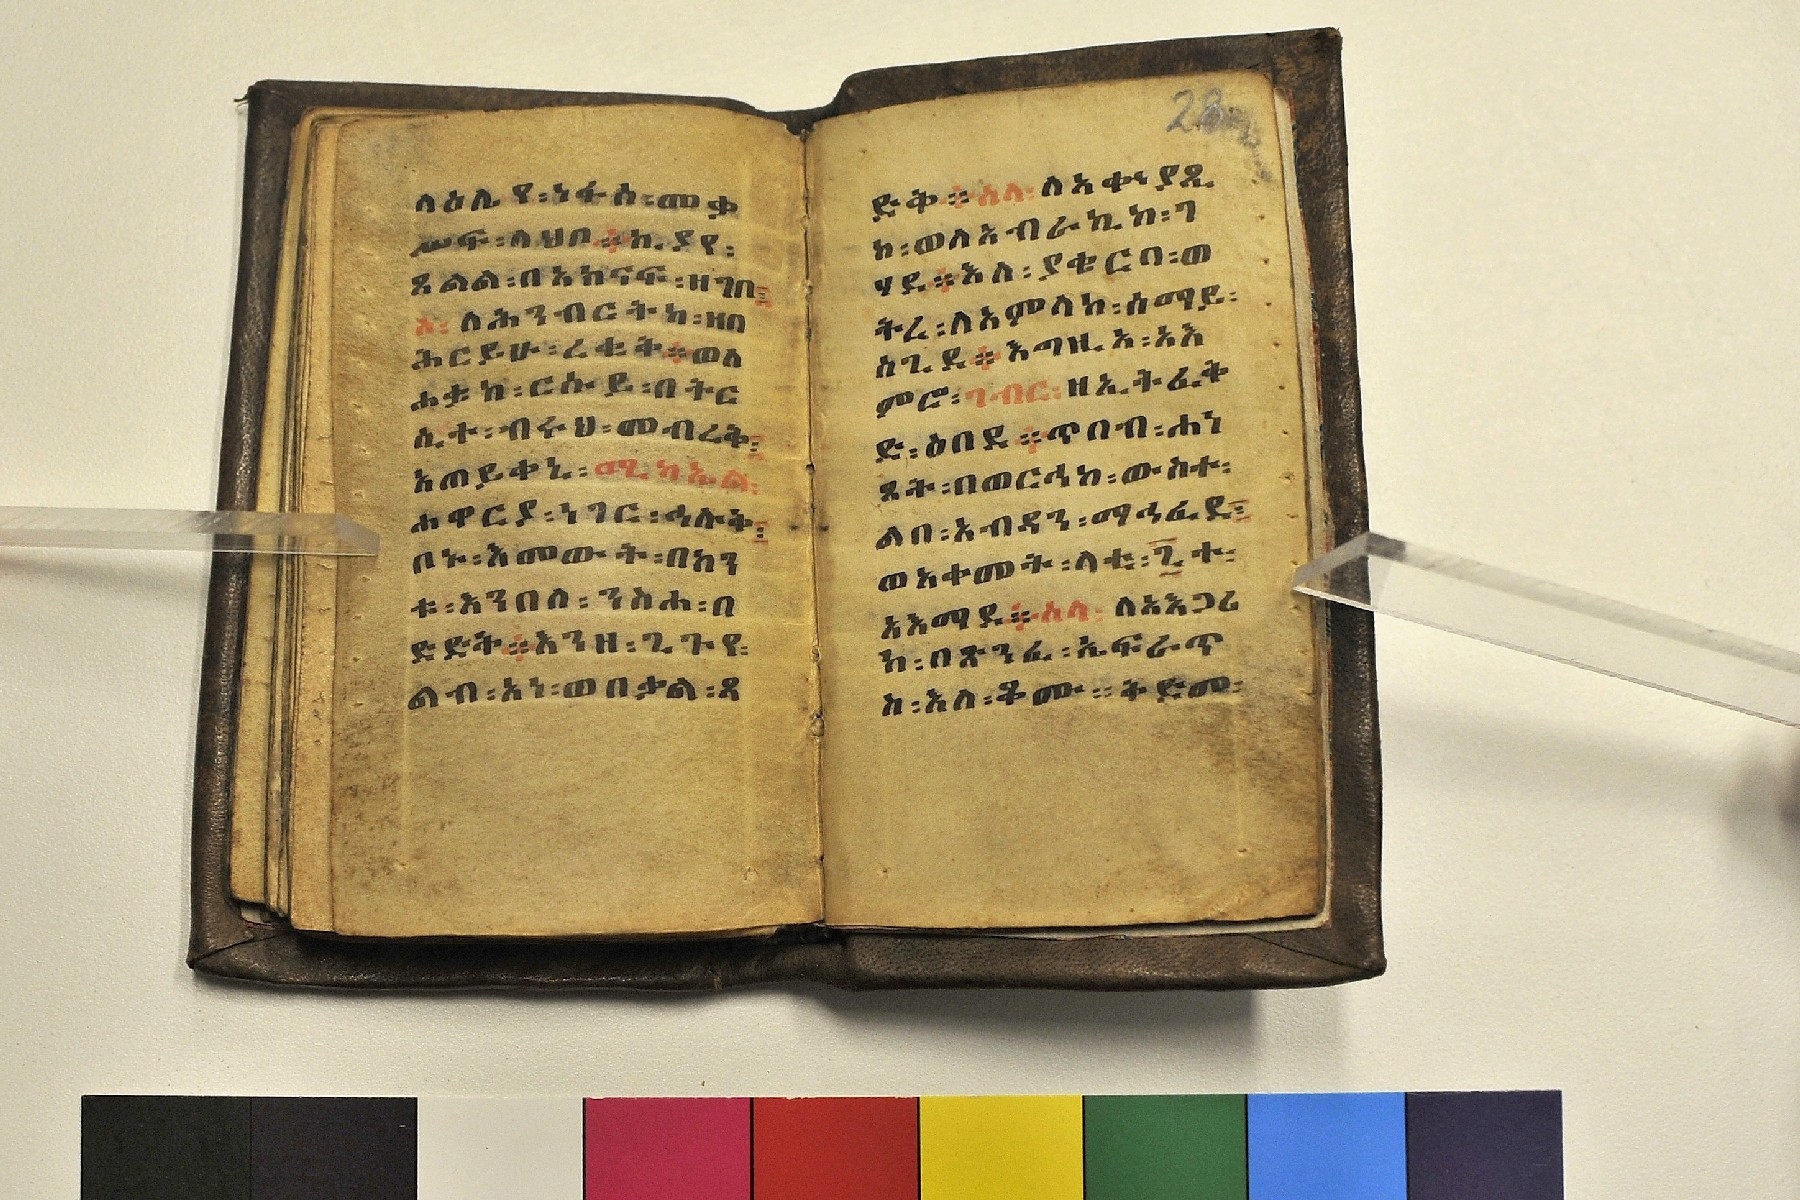 ላዕሌየ፡ነፋስ፡መቃ
ሥፍ፡ለህቦ፡፡ከ.ያየ፡
ጸልል፡በአክናፍ፡ዘገበ፤
አ፡ለሕንብርትከ፡ዘበ
ሕርይሁ፡ረቂት፡፡ወለ
ሐቋከ፡ርሱይ፡በትር
ሲተ፡ብሩህ፡መብረቅ፡
አጠይቀኒ፡ሚካኤል፡
ሐዋርያ፡ነገር፡ሓሉት፡
ቦኑ፡እመውት፡በከን
ቱ፡እንበለ፡ንስሐ፡በ
ድድት፡፡እንዘ፡ጊጉየ፡
ልብ፡አነ፡ወበቃል፡ጸ
28
ድቅ፡፡ሰላ፡ለአቀነያጺ
ከ፡ወለአብራኪከ፡ገ
ሃዱ፡፡እለ፡ያቄርቦ፡ወ
ትረ፡ለአምላከ፡ሰማይ፡
ስጊደ፡፡እግዚአ፡አእ
ምሮ፡ገብር፡ዘኢትፈቅ
ድ፡ዕበደ፡፡ጥበብ፡ሐነ
ጸት፡በወርኅከ፡ውስተ፡
ልበ፡አብዳን፡ማኅፈደ፡
ወአቀመት፡ላቲ፡፯ተ፡
አእማደ፡፡ሰላ፡ለአእጋሪ
ከ፡በጽንፈ፡ኤፍራጥ
ስ፡እለ፡ቆሙ፡፡ቅድመ፡